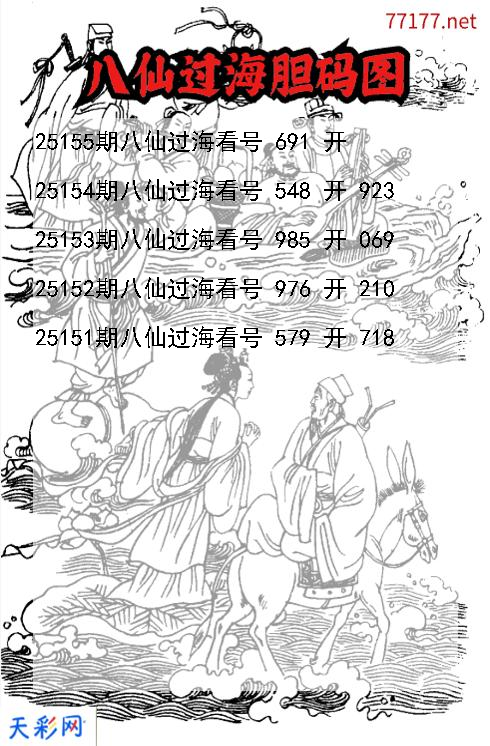 77177.net
八仙过海胆码图
25155期八仙过海看号 691 开
25154期八仙过海看号 548 开 923
25153期八仙过海看号 985 开 069
25152期八仙过海看号 976 开 210
25151期八仙过海看号 579 开 718
天彩网